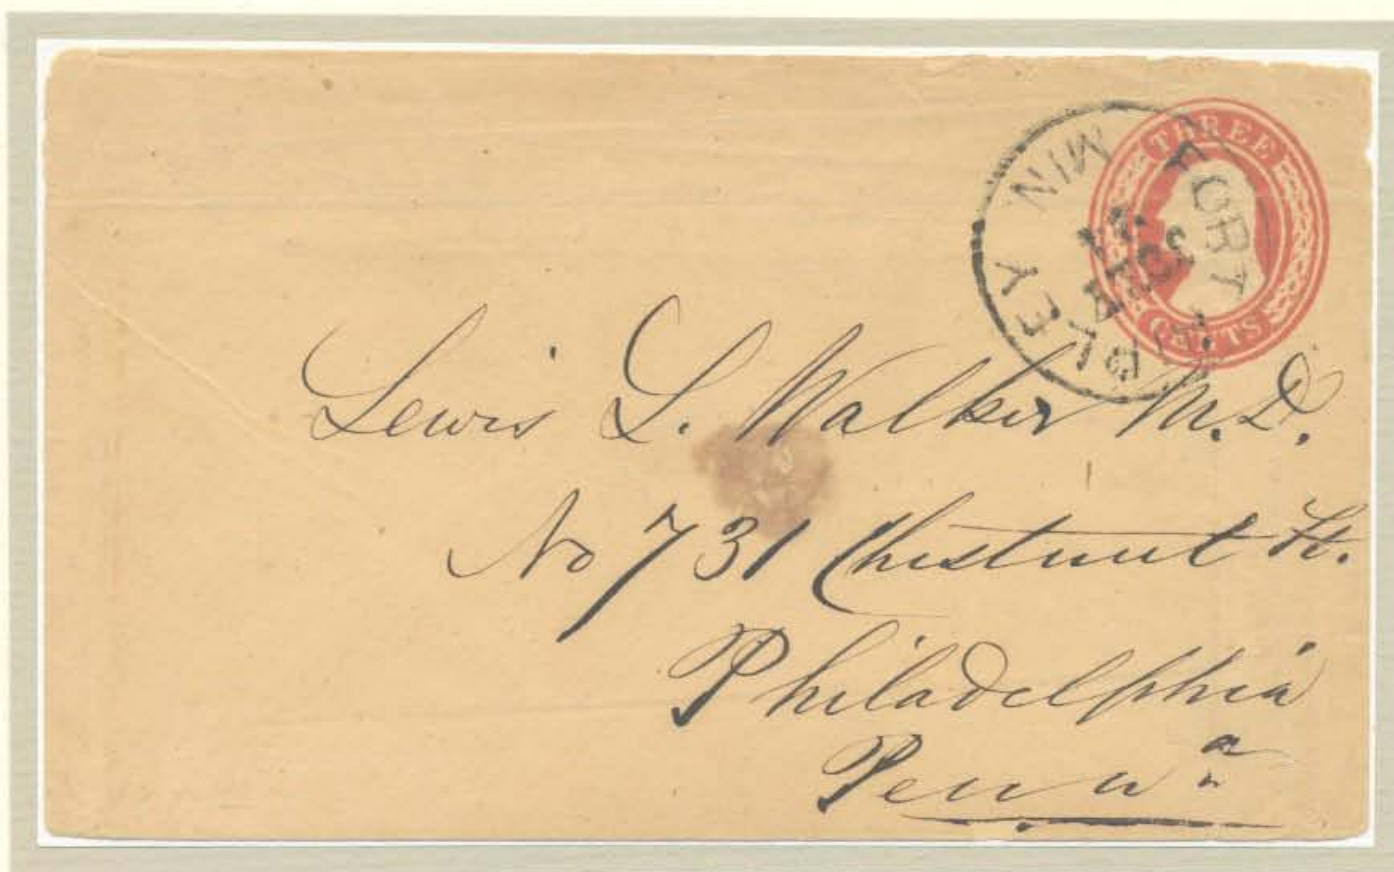 THREE
CENTS
FORT RIPLEY MIN
Lewis L. Walker M.D.
No 731 Chestnut St.
Philadelphia
Penna